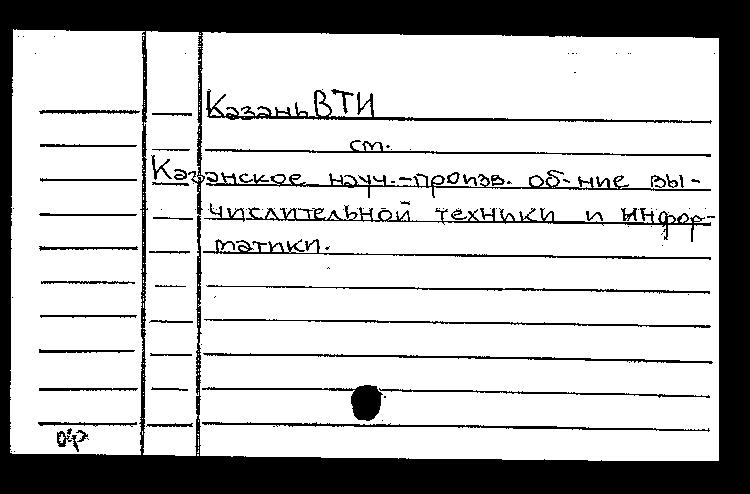 КазаньВТИ
ст.
Казанское науч.-произв. об-ние вы-
числительной техники и инфор-
матики.